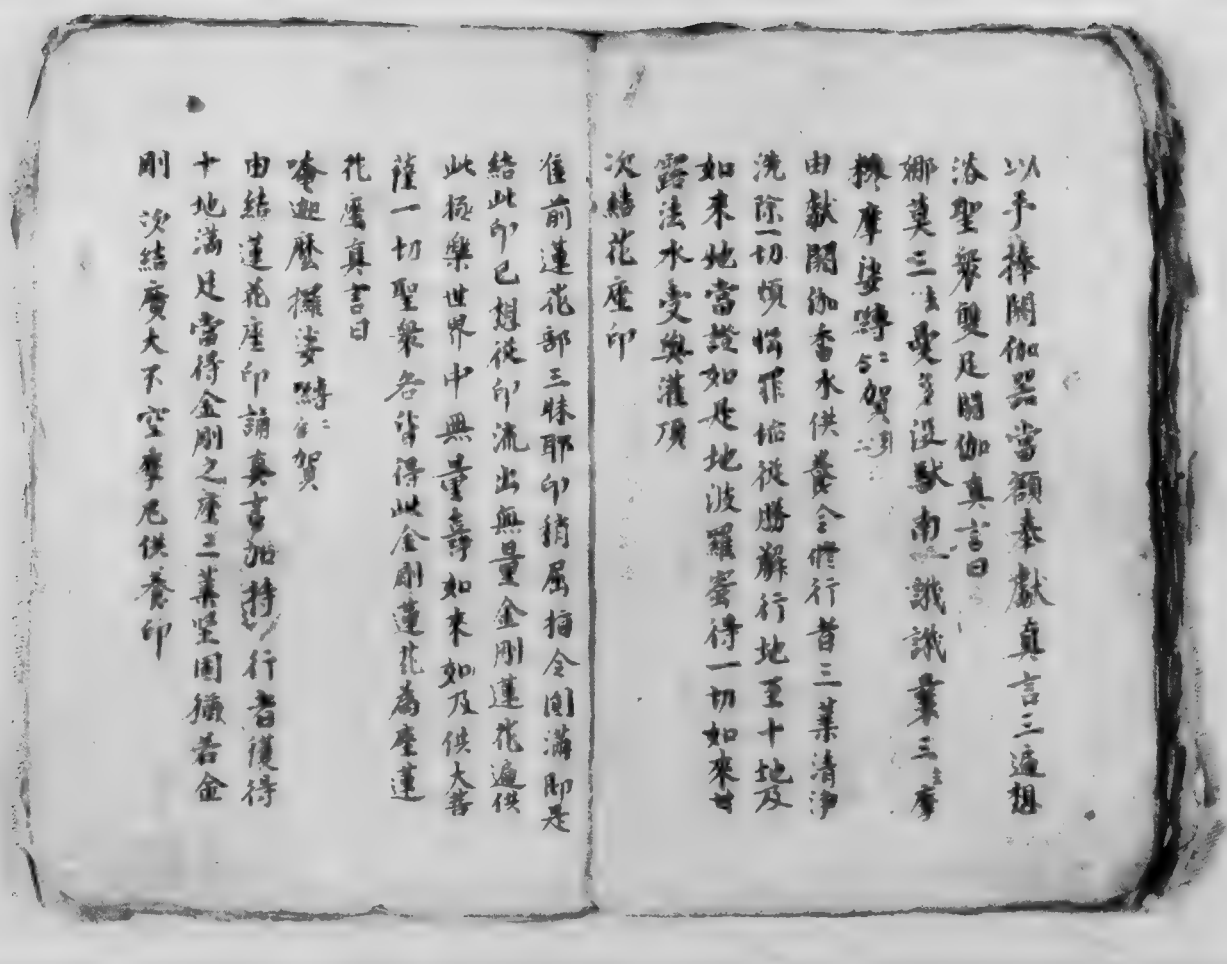 以手捧閼伽器當額奉獻真言三遍想
浴聖衆雙足閼伽真言曰
娜莫三滿多没馱南誐誐曩三摩
摩娑嚩二合賀引
由獻閼伽香水供養令修行者三業清淨
洗除一切煩惱罪垢從勝解行地至十地及
如來地當證如是地波羅蜜得一切如來甘
露法水受與灌頂
次結花座印
准前蓮花部三昧耶印稍屈指令圓滿即是
結此印已想從印流出無量金剛蓮花遍供
此極樂世界中無量壽如來如及供大菩
薩一切聖衆各皆得此金剛蓮花為座蓮
花座真言曰
唵迦麽攞娑嚩二合賀
由結蓮花座印誦真言加持行者獲得
十地滿足當得金剛之座三業堅固猶若金
剛 次結廣大不空摩尼供養印